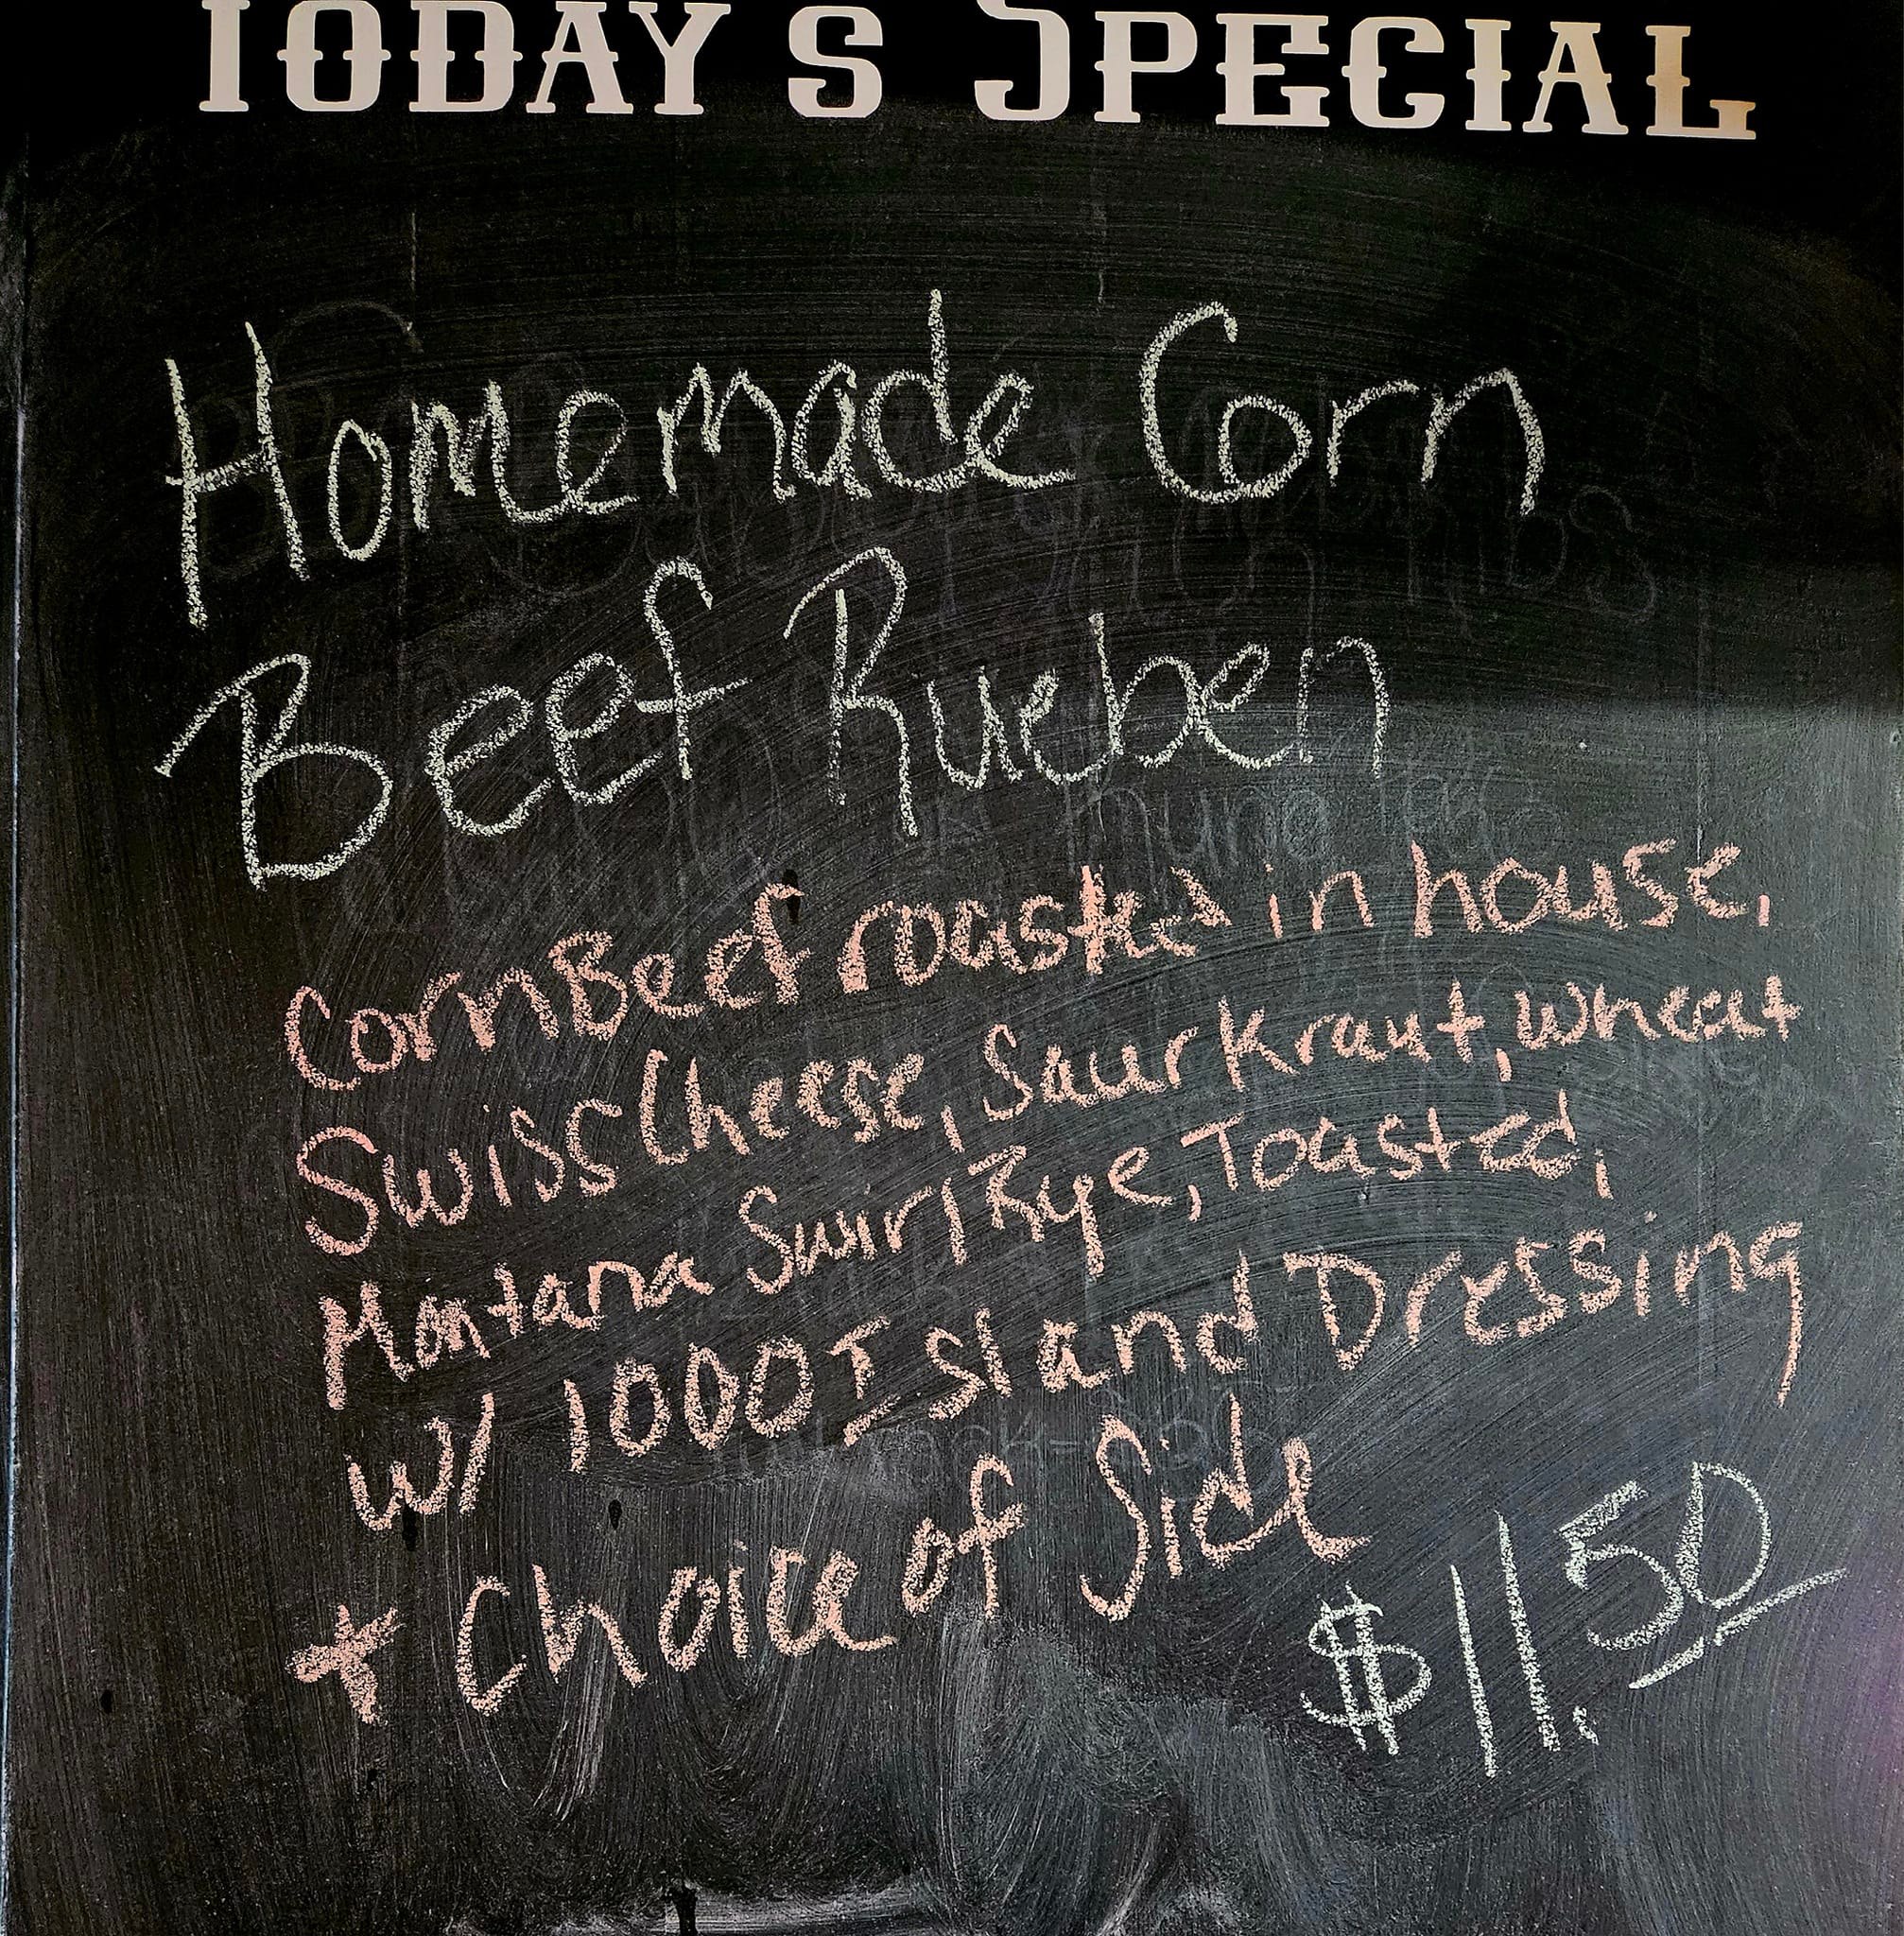 TODAY'S SPECIAL
Homemade Corn
Beef Rueben
Corn Beef roasted in house,
Swiss Cheese, Saurkraut, Wheat
Montana Swirl Rye, Toasted,
w/ 1000 Island Dressing
+ Choice of Side
$11.50